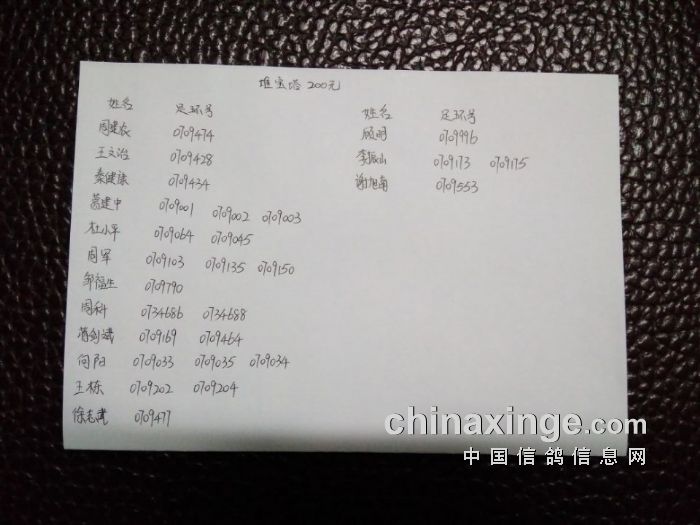 堆宝塔 200元
姓名 足环号
周建农 0709474
王文治 0709428
秦健康 0709434
葛建中 0709001 0709002 0709003
杜小平 0709064 0709045
周军 0709103 0709135 0709150
邹福生 0709790
周科 0734686 0734688
蒋剑斌 0709169 0709464
向阳 0709033 0709035 0709034
王栋 0709202 0709204
徐志 0709477
姓名 足环号
顾明 0709996
李振山 0709173 0709175
谢旭南 0709553
chinaxinge.com
中国信鸽信息网